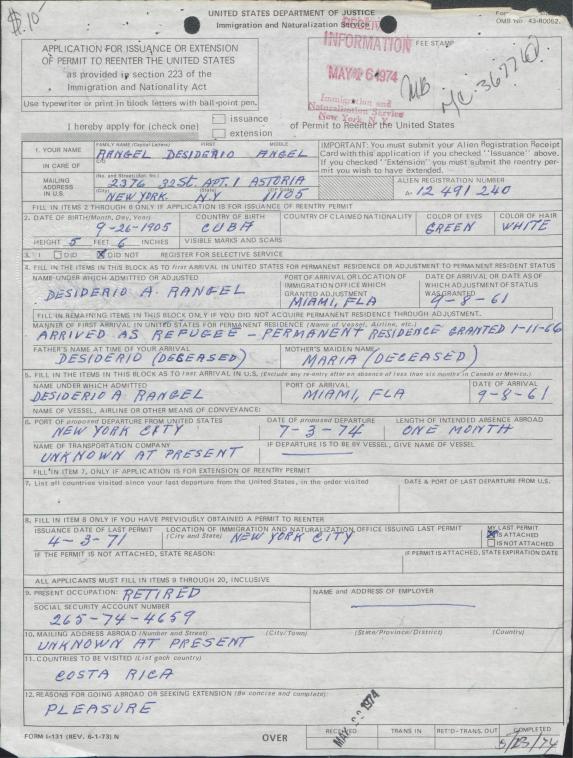 $.10-
UNITED STATES DEPARTMENT OF JUSTICE
Immigration and Naturalization Service
OMB No. 43-R0062.
APPLICATION FOR ISSUANCE OR EXTENSION
OF PERMIT TO REENTER THE UNITED STATES
as provided in section 223 of the
Immigration and Nationality Act
Use typewriter or print in block letters with ball-point pen.
INFORMATION
MAY 16 1974
Immigration and
Naturalization Service
New York, N.Y.
FEE STAMP
I hereby apply for (check one)
issuance
extension
of Permit to Reenter the United States
1. YOUR NAME
FAMILY NAME (Capital Letters) FIRST MIDDLE
RANGEL DESIDERIO ANGEL
IN CARE OF
C/O
MAILING
ADDRESS
IN U.S.
No. and Street (Apt. No.)
2376 32 St. APT. 1 ASTORIA
(City) (State)
NEW YORK N.Y 11105
IMPORTANT: You must submit your Alien Registration Receipt
Card with this application if you checked "Issuance" above.
If you checked "Extension" you must submit the reentry per-
mit you wish to have extended.
ALIEN REGISTRATION NUMBER
A- 12 491 240
FILL IN ITEMS 2 THROUGH 6 ONLY IF APPLICATION IS FOR ISSUANCE OF REENTRY PERMIT
2. DATE OF BIRTH (Month, Day, Year) COUNTRY OF BIRTH COUNTRY OF CLAIMED NATIONALITY COLOR OF EYES COLOR OF HAIR
9-26-1905 CUBA GREEN WHITE
HEIGHT 5 FEET 6 INCHES VISIBLE MARKS AND SCARS
3. I DID DID NOT REGISTER FOR SELECTIVE SERVICE
4. FILL IN THE ITEMS IN THIS BLOCK AS TO first ARRIVAL IN UNITED STATES FOR PERMANENT RESIDENCE OR ADJUSTMENT TO PERMANENT RESIDENT STATUS
NAME UNDER WHICH ADMITTED OR ADJUSTED
DESIDERIO A. RANGEL
PORT OF ARRIVAL OR LOCATION OF
IMMIGRATION OFFICE WHICH
GRANTED ADJUSTMENT
MIAMI, FLA
DATE OF ARRIVAL OR DATE AS OF
WHICH ADJUSTMENT OF STATUS
WAS GRANTED
9-8-61
FILL IN REMAINING ITEMS IN THIS BLOCK ONLY IF YOU DID NOT ACQUIRE PERMANENT RESIDENCE THROUGH ADJUSTMENT.
MANNER OF FIRST ARRIVAL IN UNITED STATES FOR PERMANENT RESIDENCE (Name of Vessel, Airline, etc.)
ARRIVED AS REFUGEE - PERMANENT RESIDENCE GRANTED 1-11-66
FATHER'S NAME AT TIME OF YOUR ARRIVAL MOTHER'S MAIDEN NAME
DESIDERIO (DECEASED) MARIA (DECEASED)
5. FILL IN THE ITEMS IN THIS BLOCK AS TO last ARRIVAL IN U.S. (Exclude any re-entry after an absence of less than six months in Canada or Mexico.)
NAME UNDER WHICH ADMITTED PORT OF ARRIVAL DATE OF ARRIVAL
DESIDERIO A RANGEL MIAMI, FLA 9-8-61
NAME OF VESSEL, AIRLINE OR OTHER MEANS OF CONVEYANCE:
6. PORT OF proposed DEPARTURE FROM UNITED STATES DATE OF proposed DEPARTURE LENGTH OF INTENDED ABSENCE ABROAD
NEW YORK CITY 7-3-74 ONE MONTH
NAME OF TRANSPORTATION COMPANY IF DEPARTURE IS TO BE BY VESSEL, GIVE NAME OF VESSEL
UNKNOWN AT PRESENT
FILL IN ITEM 7, ONLY IF APPLICATION IS FOR EXTENSION OF REENTRY PERMIT
7. List all countries visited since your last departure from the United States, in the order visited DATE & PORT OF LAST DEPARTURE FROM U.S.
8. FILL IN ITEM 8 ONLY IF YOU HAVE PREVIOUSLY OBTAINED A PERMIT TO REENTER
ISSUANCE DATE OF LAST PERMIT LOCATION OF IMMIGRATION AND NATURALIZATION OFFICE ISSUING LAST PERMIT MY LAST PERMIT
4-3-71 (City and State) NEW YORK CITY IS ATTACHED
IS NOT ATTACHED
IF THE PERMIT IS NOT ATTACHED, STATE REASON: IF PERMIT IS ATTACHED, STATE EXPIRATION DATE
ALL APPLICANTS MUST FILL IN ITEMS 9 THROUGH 20, INCLUSIVE
9. PRESENT OCCUPATION: RETIRED NAME and ADDRESS OF EMPLOYER
SOCIAL SECURITY ACCOUNT NUMBER
265-74-4659
10. MAILING ADDRESS ABROAD (Number and Street) (City/Town) (State/Province/District) (Country)
UNKNOWN AT PRESENT
11. COUNTRIES TO BE VISITED (List each country)
COSTA RICA
12. REASONS FOR GOING ABROAD OR SEEKING EXTENSION (Be concise and complete)
PLEASURE
FORM I-131 (REV. 6-1-73) N OVER RECEIVED TRANS IN RET'D-TRANS. OUT COMPLETED